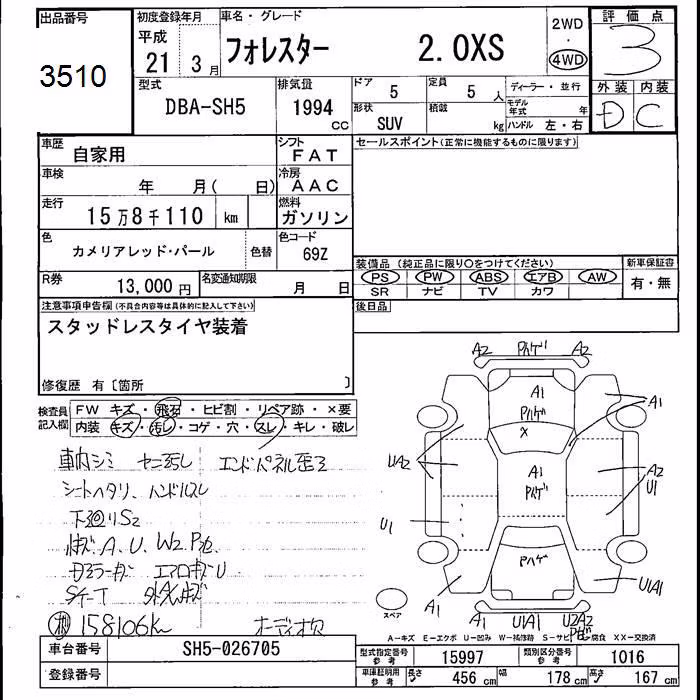 出品番号
3510
初度登録年月
平成
21 3月
車名・グレード
フォレスター 2.0XS
2WD
・
4WD
評価点
3
外装 内装
D C
型式
DBA-SH5
排気量
1994
CC
ドア
5
定員
5 人
形状
SUV
積載
kg
ディーラー・並行
モデル年式 年
ハンドル 左・右
車歴
自家用
シフト
FAT
セールスポイント(正常に機能するものに限ります)
車検
年 月( 日)
冷房
AAC
走行
15万8千110 km
燃料
ガソリン
色
カメリアレッド・パール
色替
色コード
69Z
装備品(純正品に限り○をつけてください)
新車保証書
PS PW ABS エアB AW
有・無
SR ナビ TV カワ
R券
13,000円
名変通知期限
月 日
後日品
注意事項申告欄(不具合内容等は具体的に記入して下さい)
スタッドレスタイヤ装着
修復歴 有〔箇所 〕
検査員記入欄
FW キズ・飛石・ヒビ割・リペア跡・×要
内装 キズ・汚レ・コゲ・穴・スレ・キレ・破レ
車内シミ エンドパネル歪ミ
シートヘタリ、ハンドルスレ
下廻りS2
A、U、W2
S
158106km
オーディオ欠
A2 A2
A1
A1
X
UA2
A1
A2
U1
U1
A1
U1A1
U1A1
U2A2
スペア
A-キズ E-エクボ U-凹み W-補修跡 S-サビ C-腐食 XX-交換済
車台番号
SH5-026705
登録番号
型式指定番号
参考
15997
類別区分番号
参考
1016
車庫証明用
参考
長さ
456 cm
幅
178 cm
高さ
167 cm